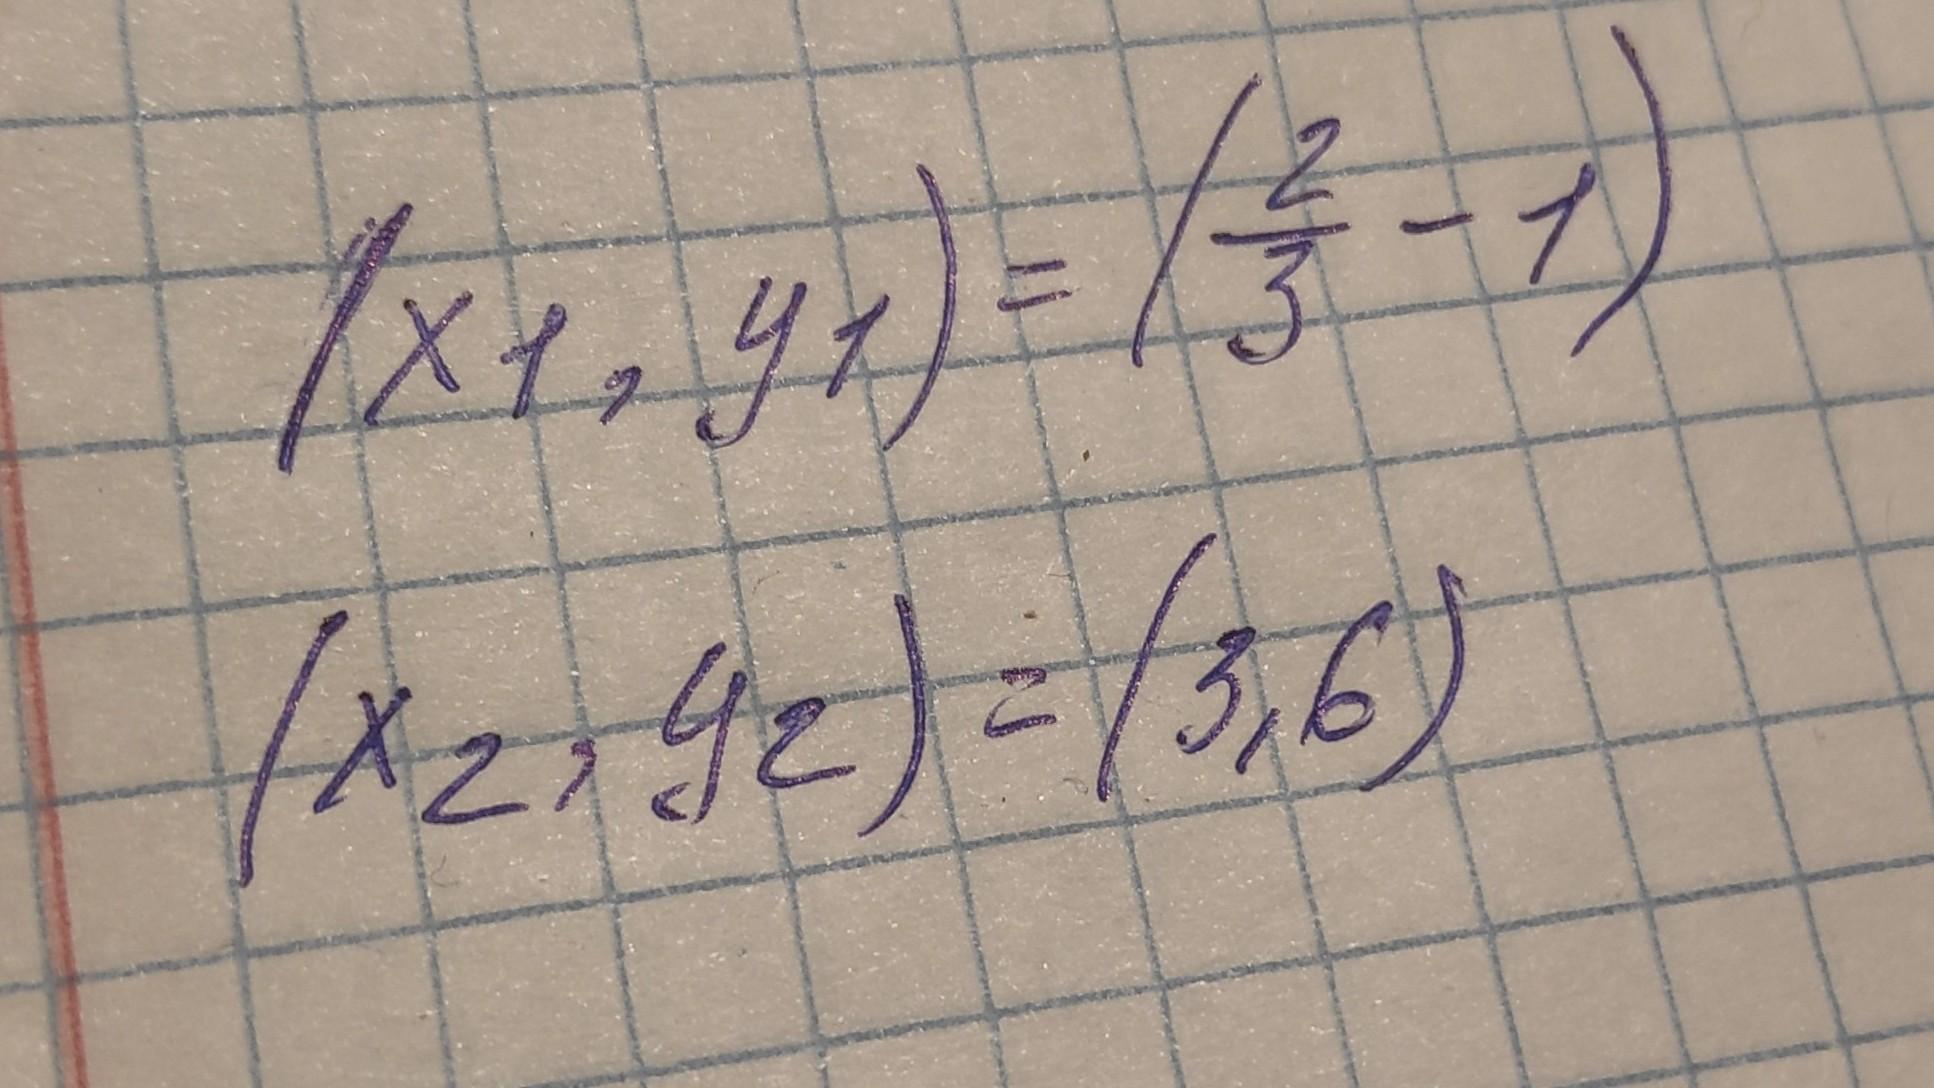 (x1, y1) = (2/3 - 1)
(x2, y2) = (3,6)